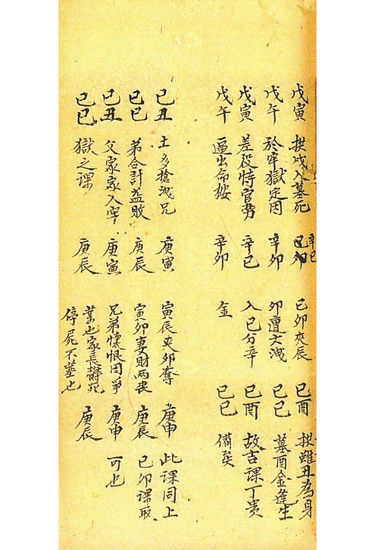 戊寅 拱戌入墓死 辛巳 己卯 己卯夾辰 己酉 拱雖丑為身
戊午 於牢獄定因 辛卯 卯遭文洩 己巳 墓酉金逢生
戊寅 差役恃官勢 辛巳 入巳分辛 己酉 故古課丁貴
戊午 逼出命按 辛卯 金 己巳 備矣
己丑 土多搶洩兄 庚寅 寅辰夾卯奪 庚申 此課同上
己巳 弟合計益敗 庚辰 寅卯妻財両喪 庚辰 己卯課取
己丑 父家家入牢 庚寅 兄弟懷恨因爭 庚申 可也
己巳 獄之課 庚辰 業也家長死 庚辰
停屍不葬也